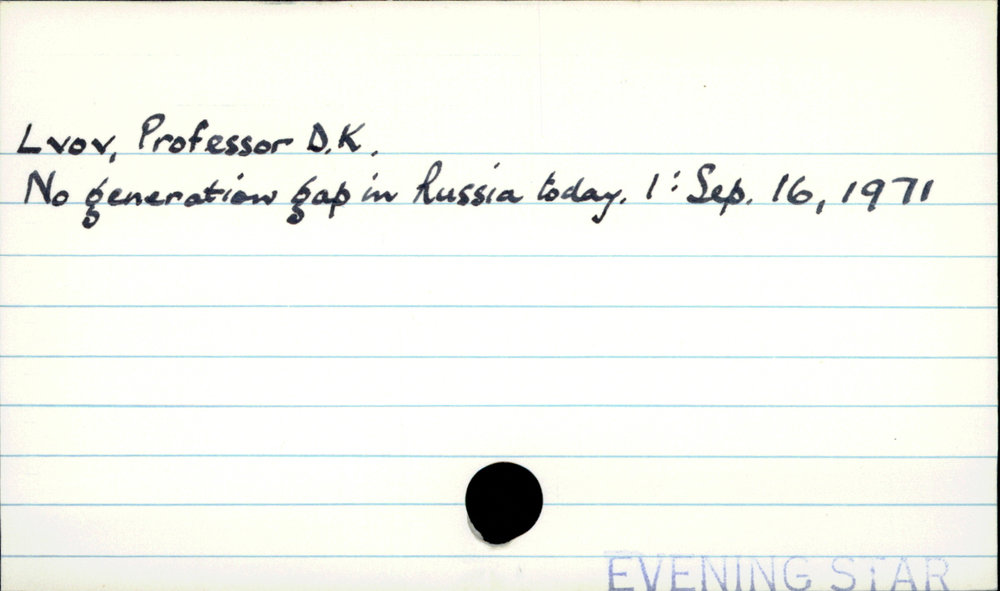 Lvov, Professor D.K.
No generation gap in Russia today. 1: Sep. 16, 1971
EVENING STAR